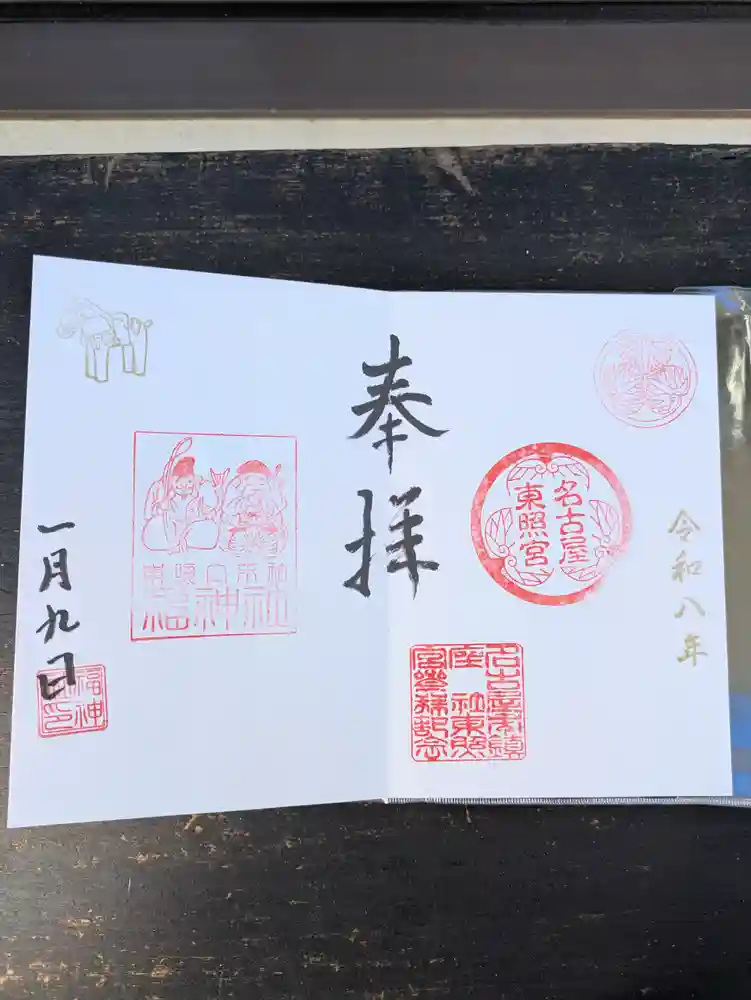 令和八年
名古屋
東照宮
名古屋東鎮
座　社東照
宮参拝記念
奉拝
福神
一月九日